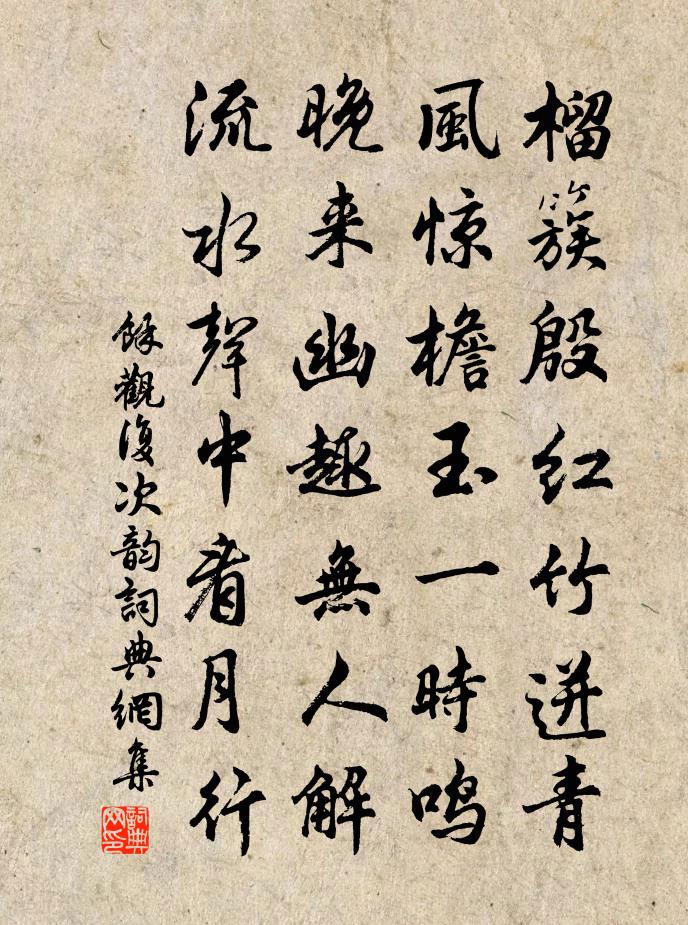 榴簇殷红竹迸青
風惊檐玉一時鸣
晚来幽趣無人解
流水聲中看月行
餘觀復次韵詞典網集
詞典网印